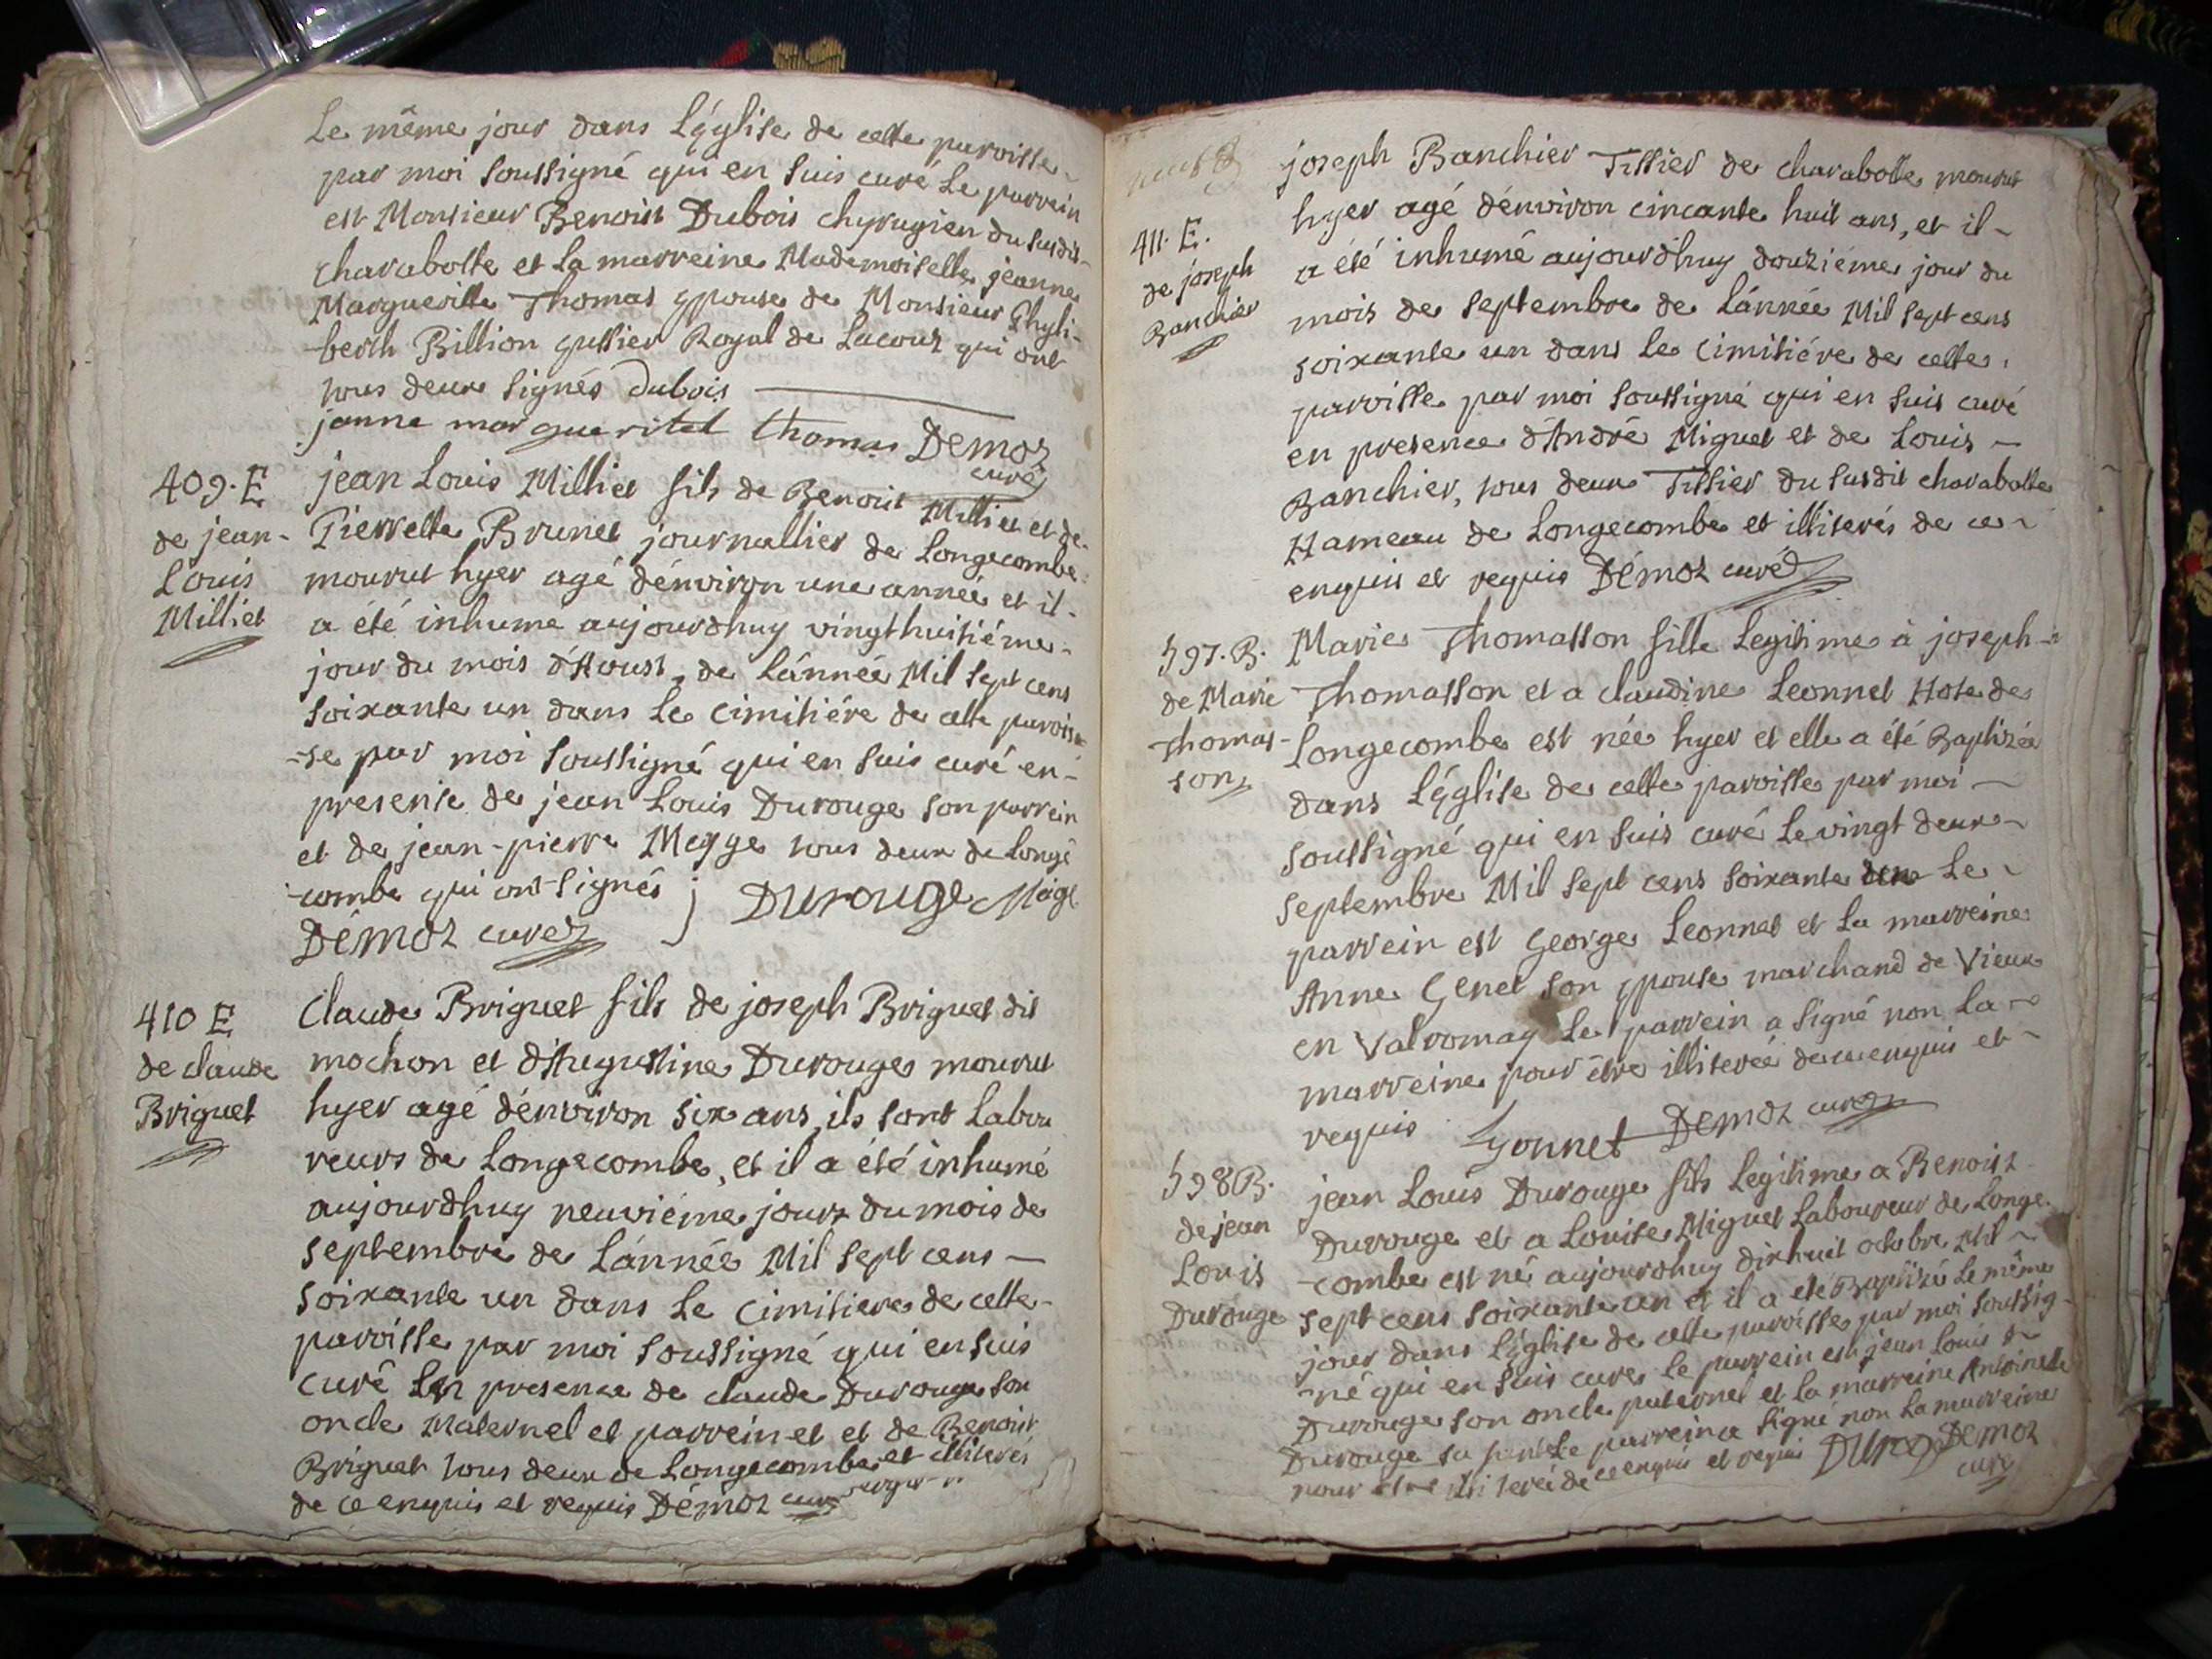 Le même jour dans L'église de cette paroisse
par moi soussigné qui en suis curé Le parrein
est Monsieur Benoist Dubois chyrugien du susdit
charabotte et La marreine Mademoiselle jeanne
Margueritte Thomas épouse de Monsieur Phyli-
berth Billion Royal de Lacoux qui ont
tous deux signés Dubois
janne margueritet thomas Demoz
curé
409. E
de jean-
Louis
Milliet
jean Louis Milliet fils de Benoit Milliet et de
Pierrette Brunet journallier de Longecombe
mourut hyer agé d'environ une année et il
a été inhumé aujourdhuy vingthuitiéme
jour du mois d'Aoust, de L'année Mil sept cens
soixante un dans Le cimitiére de cette parois
-se par moi soussigné qui en suis curé en-
presense de jean Louis Durouge son parrein
et de jean-pierre Megge tous deux de Longe
-combe qui ont signés j Durouge Mege
Démoz curé
410 E
de claude
Briguet
Claude Briguet fils de joseph Briguet dit
mochon et d'Augustine Durouge mourut
hyer agé d'environ six ans, ils sont Labou
reurs de Longecombe, et il a été inhumé
aujourdhuy neuviéme jour du mois de
septembre de L'année Mil sept cens
soixante un dans Le cimitiere de cette
paroisse par moi soussigné qui en suis
curé en presence de claude Durouge son
oncle Maternel et parrein et et de Benoit
Briguet tous deux de Longecombe et illiterés
de ce enquis et requis Démoz curé
joseph Banchier Tissier de charabotte mourut
hyer agé d'environ cincante huit ans, et il
a été inhumé aujourdhuy douziéme jour du
mois de septembre de L'année Mil sept cens
soixante un dans Le cimitiére de cette
paroisse par moi soussigné qui en suis curé
en presence d'André Miguet et de Louis
Banchier, tous deux Tissier du susdit charabotte
Hameau de Longecombe et illiterés de ce
enquis et requis Démoz curé
411. E.
de joseph
Banchier
597. B.
de Marie
Thomas-
son
Marie Thomasson fille Legitime à joseph
Thomasson et a claudine Leonnet Hote de
Longecombe est née hyer et elle a été Baptizée
dans L'église de cette paroisse par moi
soussigné qui en suis curé Le vingt deux
septembre Mil sept cens soixante Le
parrein est George Leonnet et La marreine
Anne Genet son épouse marchand de Vieux
en Valromay Le parrein a signé non La
marreine pour être illiterée de ce enquis et
requis Lyonnet Demoz curé
598 B.
de jean
Louis
Durouge
jean Louis Durouge fils Legitime a Benoist
Durouge et a Louise Miguet Laboureur de Longe
-combe est né aujourdhuy dixhuit octobre Mil
sept cens soixante un et il a été Baptizé Le même
jour dans L'église de cette paroisse par moi soussig-
né qui en suis curé Le parrein est jean Louis
Durouge son oncle paternel et La marreine Antoinette
Durouge sa Le parrein a signé non La marreine
pour etre illiterée de ce enquis et requis Demoz
curé